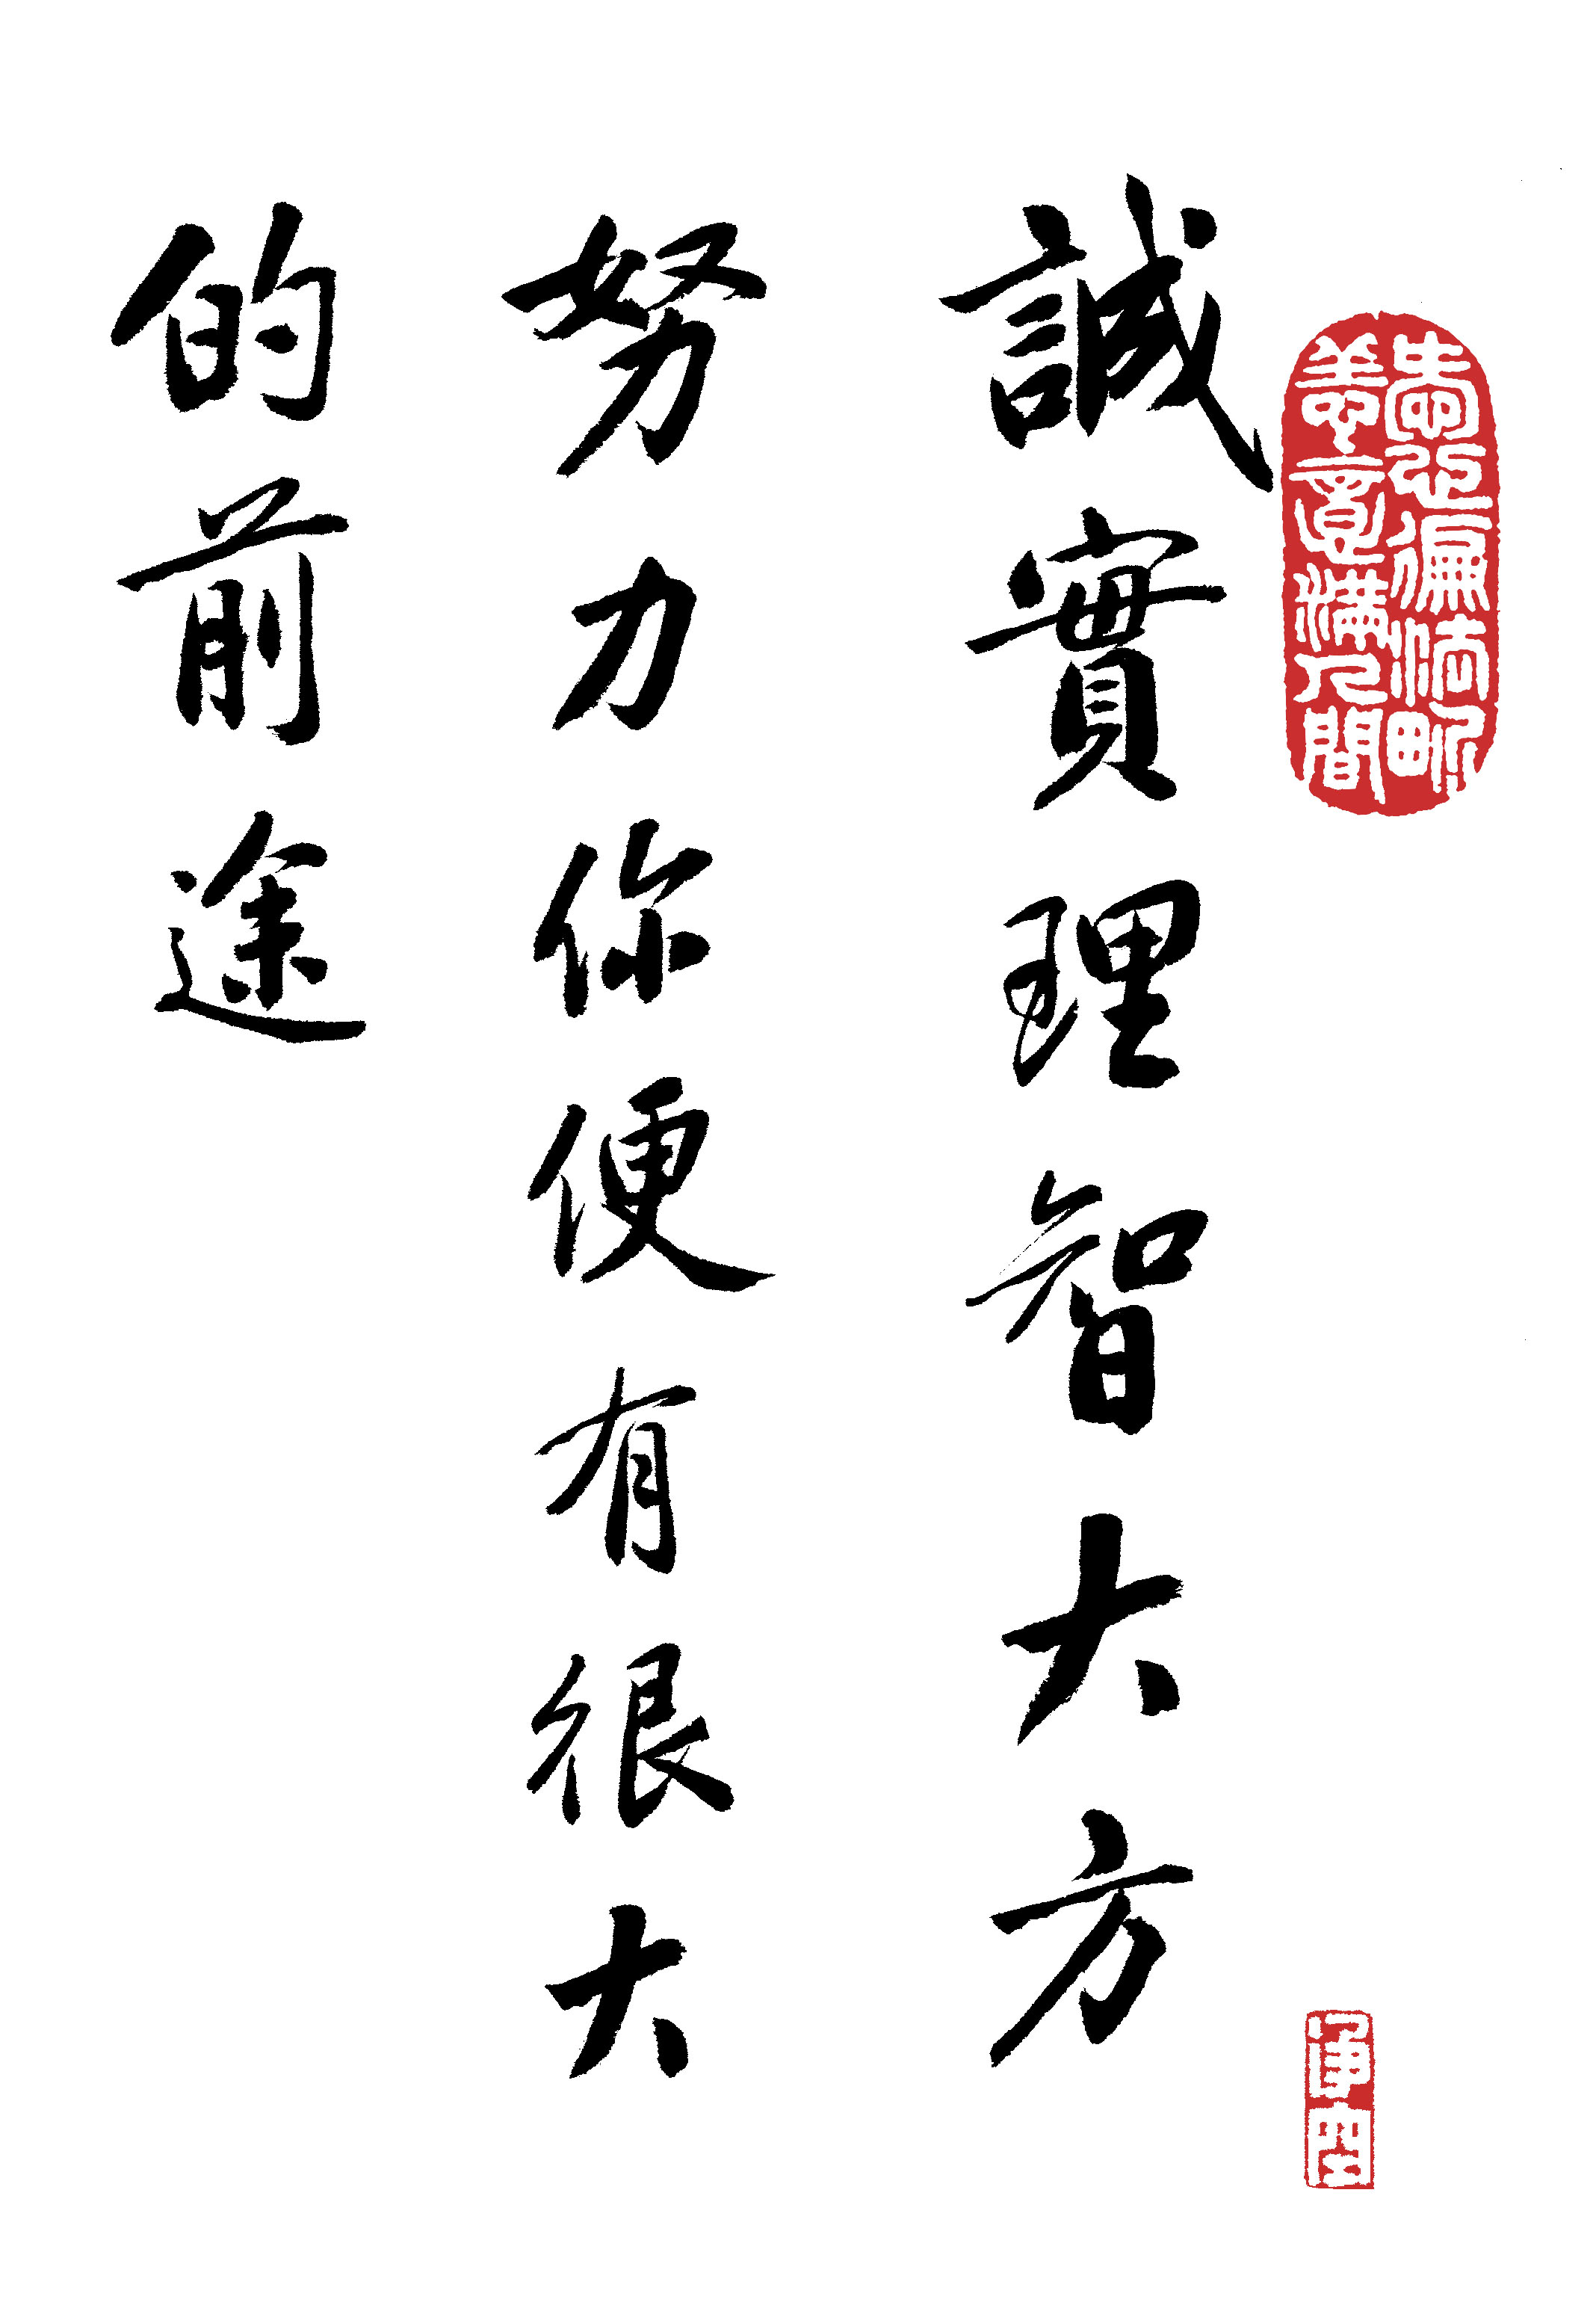 愛心徧法界
善意滿人間
淨空
誠實理智大方
努力你便有很大
的前途